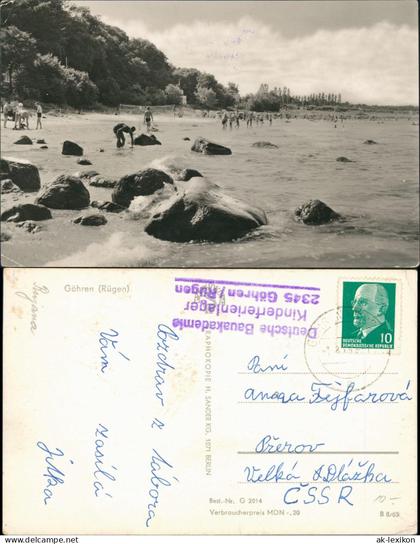 Göhren (Rügen)
Rujana
Deutsche Bauakademie
Kinderferienlager
2345 Göhren / Rügen
Pozdrav z tábora
Vám zasílá
Jitka
H. SANDER KG, 1071 BERLIN
Best.-Nr. G 2014
Verbraucherpreis MDN -,20
B 8/65
10
DEUTSCHE
DEMOKRATISCHE REPUBLIK
Paní
Fejfarová
Přerov
Velká Dlážka
ČSSR
10-
© ak-lexikon
ak-lexikon.com